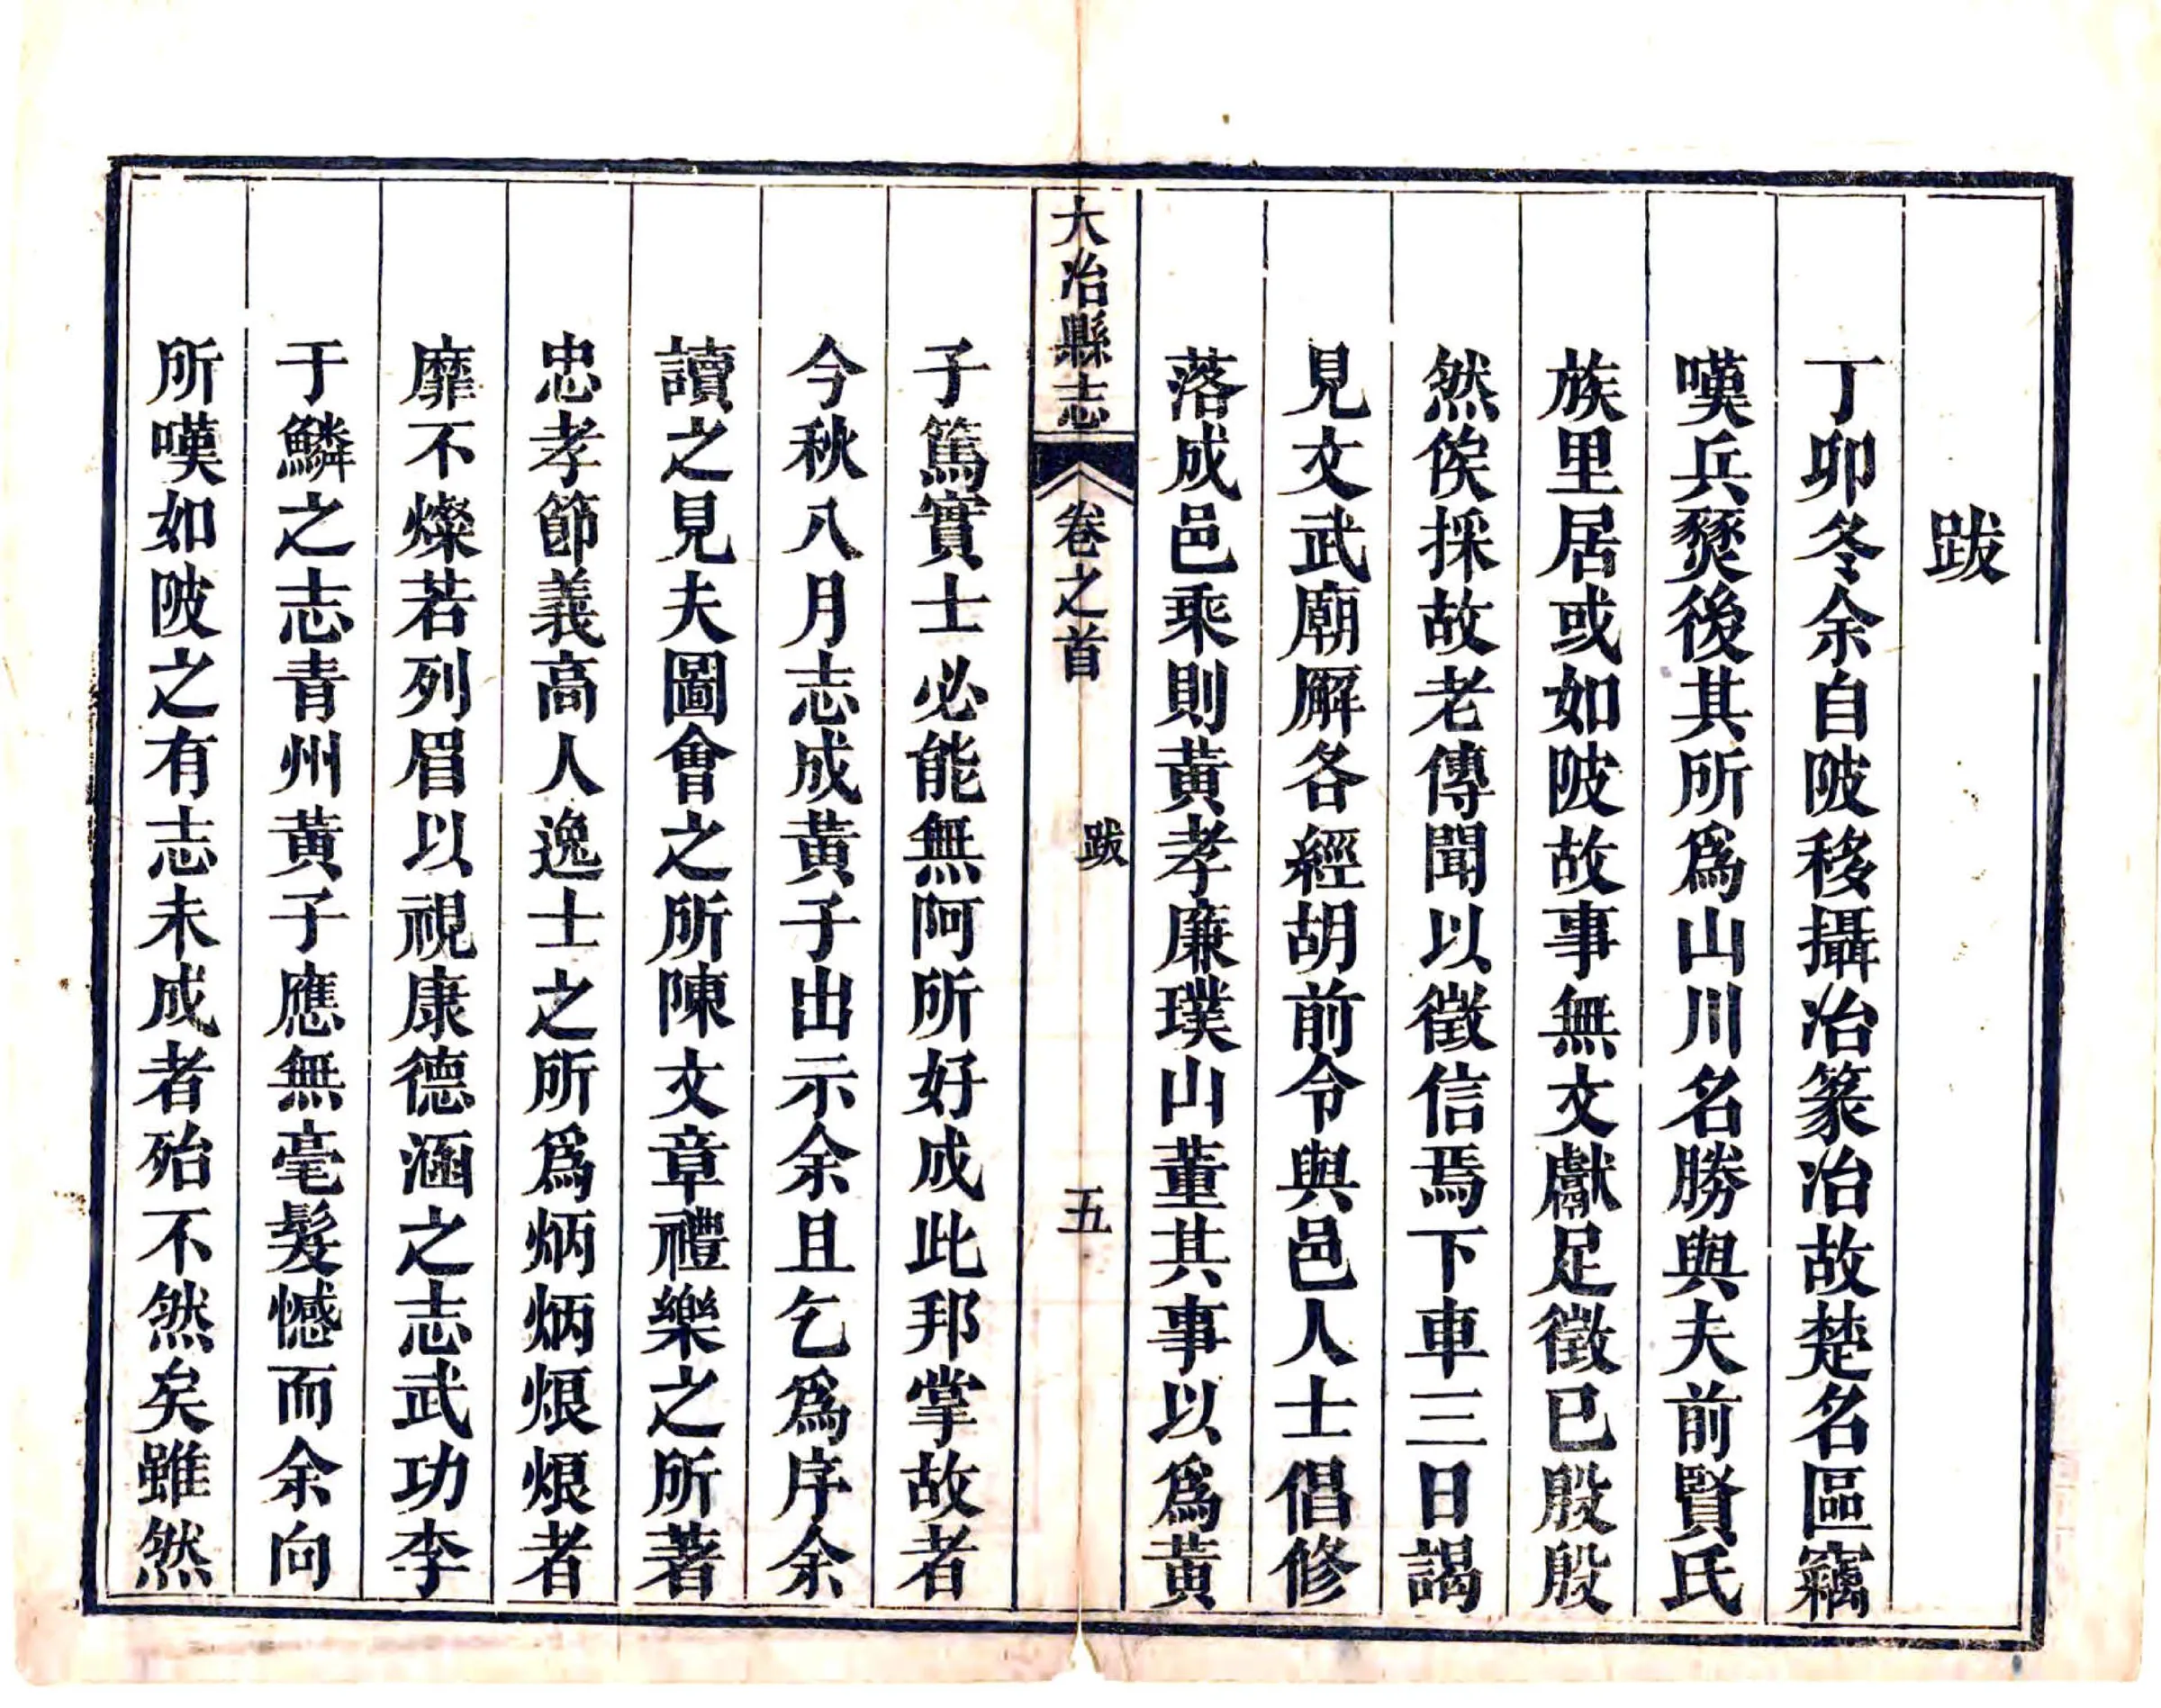 跋
丁卯冬余自陂移攝冶篆冶故楚名區竊
嘆兵燹後其所爲山川名勝與夫前賢氏
族里居或如陂故事無文獻足徵已殷殷
然俟採故老傳聞以徵信焉下車三日謁
見文武廟廨各經胡前令與邑人士倡修
落成邑乘則黃孝廉璞山董其事以爲黃
大冶縣志
卷之首
跋
五
子篤實士必能無阿所好成此邦掌故者
今秋八月志成黃子出示余且乞爲序余
讀之見夫圖會之所陳文章禮樂之所著
忠孝節義高人逸士之所爲炳炳烺烺者
靡不燦若列眉以視康德涵之志武功李
于鱗之志青州黃子應無毫髮憾而余向
所嘆如陂之有志未成者殆不然矣雖然